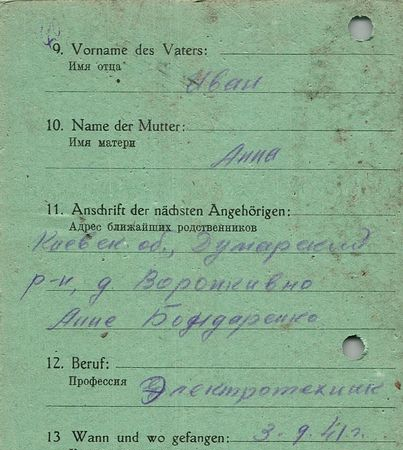 9. Vorname des Vaters:
Имя отца
Иван
10. Name der Mutter:
Имя матери
Анна
11. Anschrift der nächsten Angehörigen:
Адрес ближайших родственников
Киевск. об.,
р-н, д. Воронкивно
Анне Бондаренко
12. Beruf:
Профессия Электротехник
13 Wann und wo gefangen: 3. 9. 41 г.